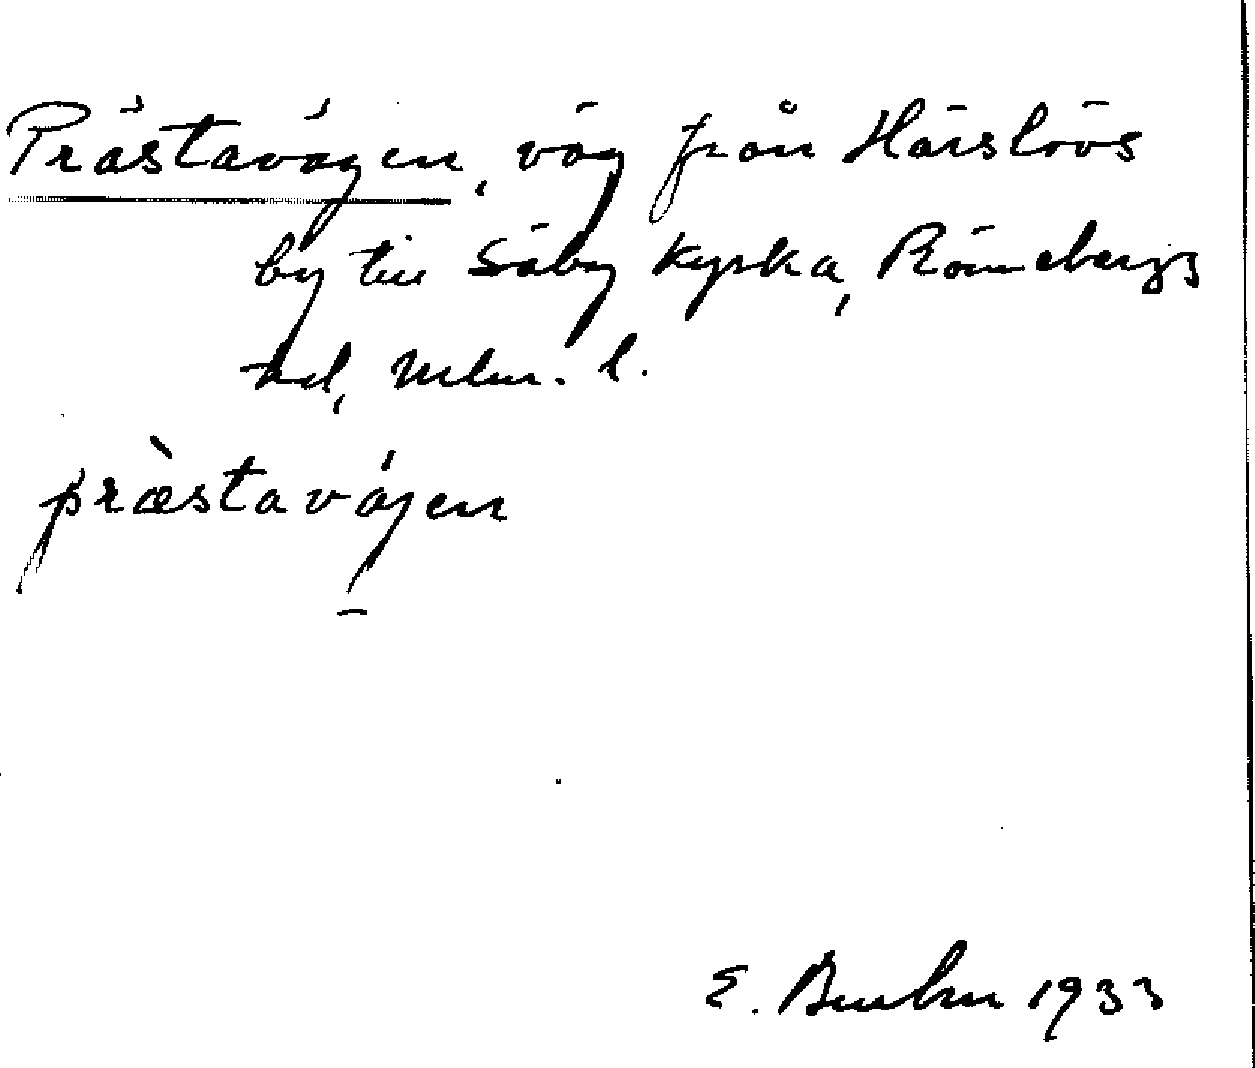 Prästavägen, väg från Härslövs
by till Säby kyrka, Rönnebergs
hd, Mlm. l.
præ̀stavájen
E. 1933